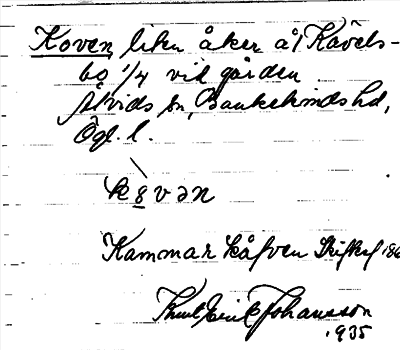 Koven, liten åker å Kåvels-
bo 1/4 vid gården
Åtvids sn, Bankekinds hd,
Ögl. l.
kȣvən
Kammar kåfven Skifteskf 186
Knut Eric Johansson
1935